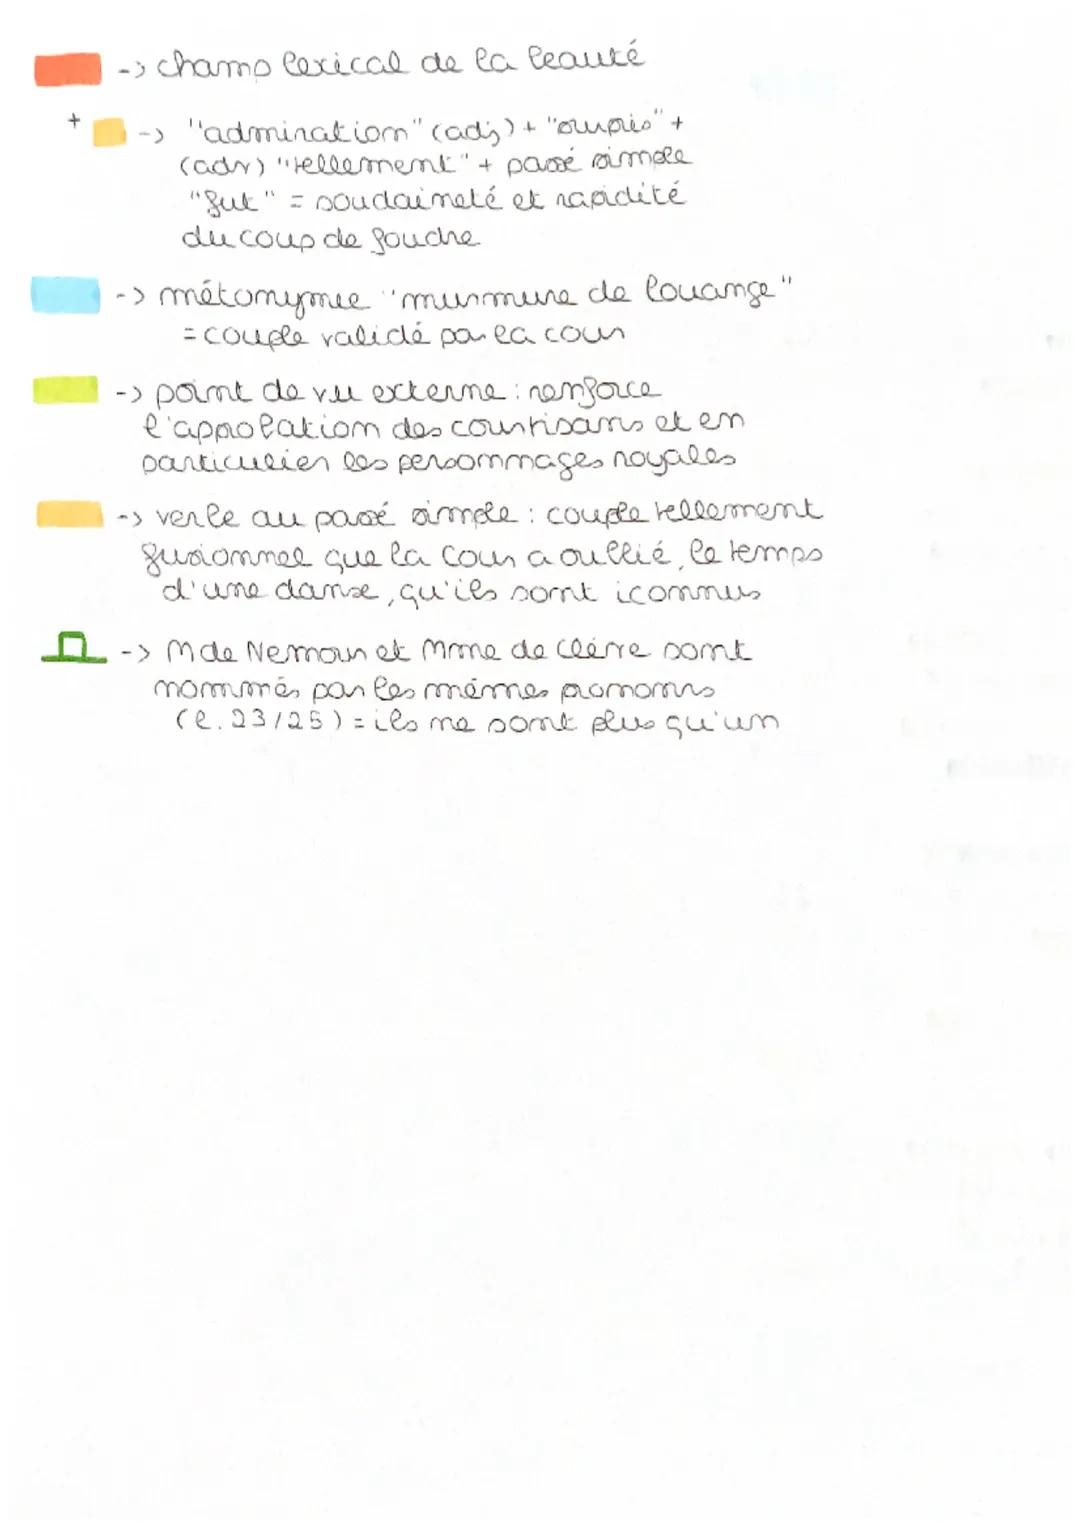 -> champ lexical de la beauté
+ -> "admiration" (adj) + "surpris" +
(adv) "tellement" + passé simple
"fut" = soudaineté et rapidité
du coup de foudre
-> métonymie "murmure de louange"
= couple validé par la cour
-> point de vu externe : renforce
l'approbation des courtisans et en
particulier les personnages royales
-> verbe au passé simple : couple tellement
fusionnel que la Cour a oublié, le temps
d'une danse, qu'ils sont iconnus
-> M de Nemour et Mme de Clève sont
nommés par les mêmes pronoms
(l. 23/25) = ils ne sont plus qu'un